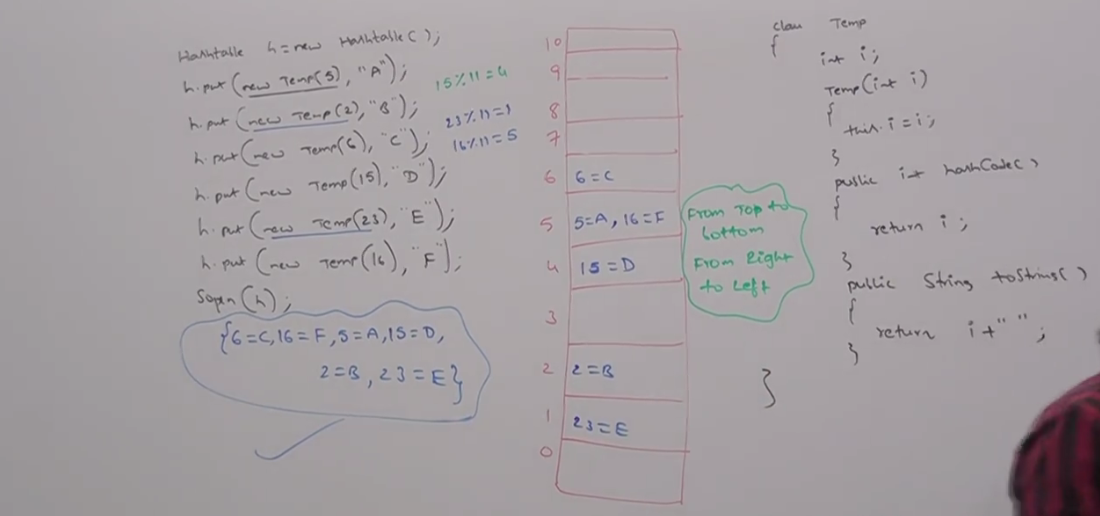 Hashtable h = new Hashtable();
h.put(new Temp(5), "A");
h.put(new Temp(2), "B");
h.put(new Temp(6), "C");
h.put(new Temp(15), "D");
h.put(new Temp(23), "E");
h.put(new Temp(16), "F");
Sopln(h);
{6=C, 16=F, 5=A, 15=D,
2=B, 23=E}
15%11=4
23%11=1
16%11=5
10
9
8
7
6 6=C
5 5=A, 16=F
4 15=D
3
2 2=B
1 23=E
0
From Top to
bottom
From Right
to Left
class Temp
{
int i;
Temp(int i)
{
this.i=i;
}
public int hashCode()
{
return i;
}
public String toString()
{
return i+" ";
}
}